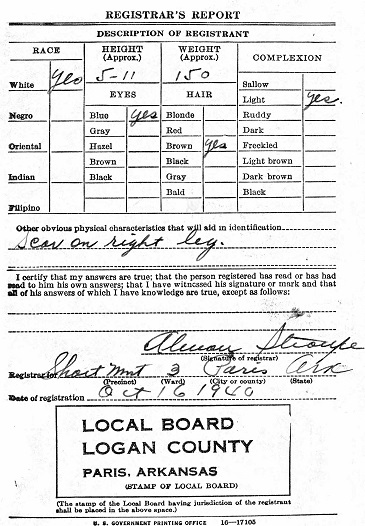 REGISTRAR'S REPORT
DESCRIPTION OF REGISTRANT
RACE HEIGHT (Approx.) WEIGHT (Approx.) COMPLEXION
White Yes 5-11 150
EYES HAIR
Sallow
Light Yes.
Negro Blue Yes Blonde Ruddy
Gray Red Dark
Oriental Hazel Brown Yes Freckled
Brown Black Light brown
Indian Black Gray Dark brown
Bald Black
Filipino
Other obvious physical characteristics that will aid in identification
Scar on right leg.
I certify that my answers are true; that the person registered has read or has had
read to him his own answers; that I have witnessed his signature or mark and that
all of his answers of which I have knowledge are true, except as follows:
(Signature of registrar)
Registrar for Short Mnt 3 Paris Ark
(Precinct) (Ward) (City or county) (State)
Date of registration Oct 16 1940
LOCAL BOARD
LOGAN COUNTY
PARIS, ARKANSAS
(STAMP OF LOCAL BOARD)
(The stamp of the Local Board having jurisdiction of the registrant
shall be placed in the above space.)
U. S. GOVERNMENT PRINTING OFFICE 16—17105